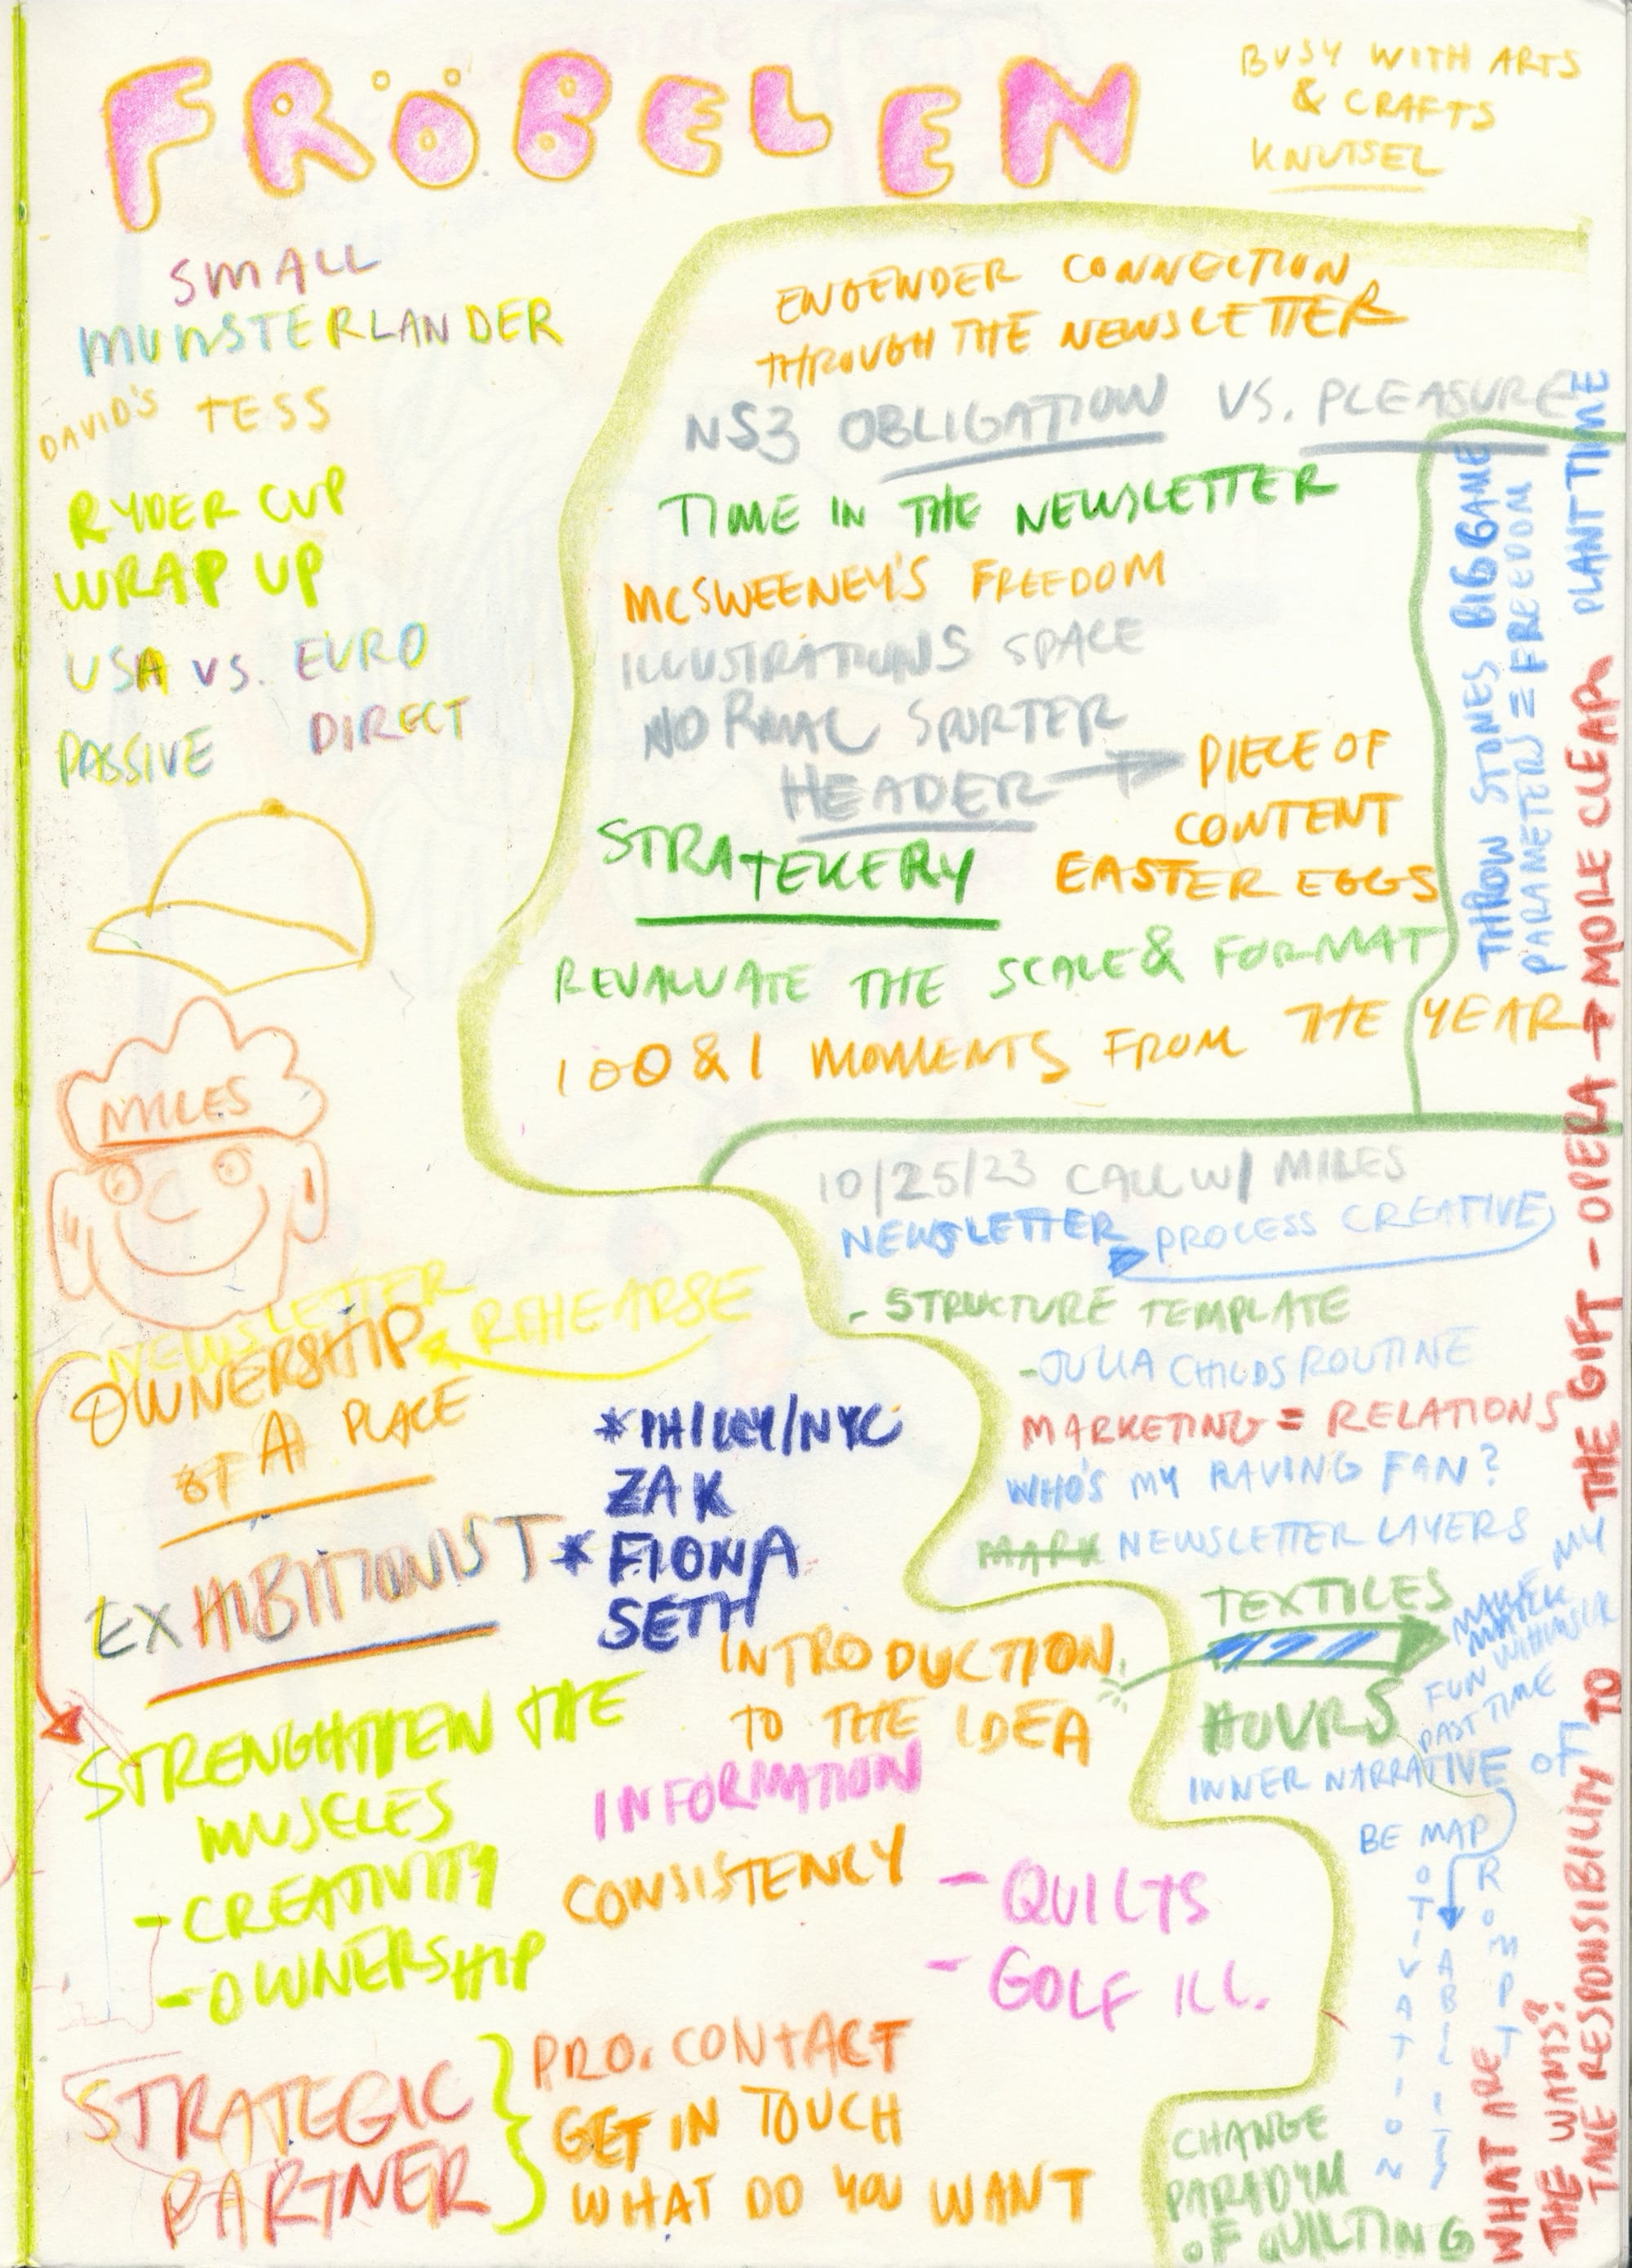 FRÖBELEN
BUSY WITH ARTS
& CRAFTS
KNUTSEL
SMALL
MUNSTERLANDER
DAVID'S TESS
RYDER CUP
WRAP UP
USA VS. EURO
PASSIVE DIRECT
MILES
NEWSLETTER
REHEARSE
OWNERSHIP
OF A PLACE
EXHIBITIONIST
* PHILLY/NYC
ZAK
* FIONA
SETH
STRENGHTHEN THE
MUSCLES
- CREATIVITY
- OWNERSHIP
INTRODUCTION
TO THE IDEA
INFORMATION
CONSISTENCY
- QUILTS
- GOLF ILL.
STRATEGIC
PARTNER
PRO. CONTACT
GET IN TOUCH
WHAT DO YOU WANT
ENGENDER CONNECTION
THROUGH THE NEWSLETTER
NS3 OBLIGATION VS. PLEASURE
TIME IN THE NEWSLETTER
MCSWEENEY'S FREEDOM
ILLUSTRATIONS SPACE
NORMAL SPORTER
HEADER → PIECE OF
CONTENT
EASTER EGGS
STRATEKERY
REVALUATE THE SCALE & FORMAT
100 & 1 MOMENTS FROM THE YEAR
THROW STONES BIG GAME
PARAMETERS = FREEDOM
PLANT TIME
10/25/23 CALL W/ MILES
NEWSLETTER
PROCESS CREATIVE
- STRUCTURE TEMPLATE
- JULIA CHILDS ROUTINE
MARKETING = RELATIONS
WHO'S MY RAVING FAN?
MARK NEWSLETTER LAYERS
TEXTILES
HOURS
MY
FUN WHIMSICK
PAST TIME
INNER NARRATIVE OF
BE MAP
MOTIVATION
ABILITY
PROMPT
CHANGE
PARADYM
OF QUILTING
WHAT ARE
THE WANTS?
TAKE RESPONSIBILITY TO
THE GIFT - OPERA → MORE CLEAR